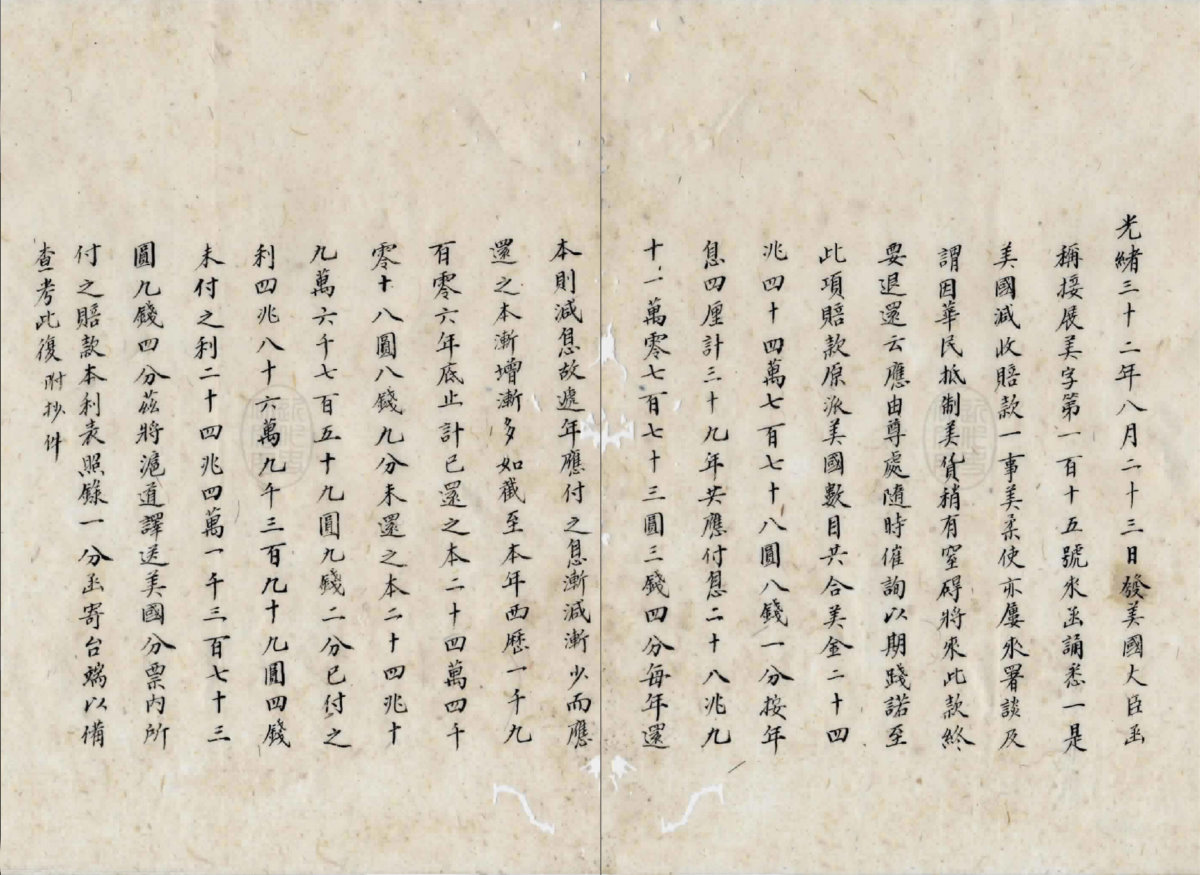 光緒三十二年八月二十三日發美國大臣函
稱接展美字第一百十五號來函誦悉一是
美國減收賠款一事美柔使亦屢來署談及
謂因華民抵制美貨稍有窒碍將來此款終
要退還云應由尊處隨時催詢以期踐諾至
此項賠款原派美國數目共合美金二十四
兆四十四萬七百七十八圓八錢一分按年
息四厘計三十九年共應付息二十八兆九
十一萬零七百七十三圓三錢四分每年還
本則減息故遞年應付之息漸減漸少而應
還之本漸增漸多如截至本年西歷一千九
百零六年底止計已還之本二十四萬四千
零十八圓八錢九分未還之本二十四兆十
九萬六千七百五十九圓九錢二分已付之
利四兆八十六萬九千三百九十九圓四錢
未付之利二十四兆四萬一千三百七十三
圓九錢四分茲將滬道譯送美國分票內所
付之賠款本利表照錄一分函寄台端以備
查考此復附抄件